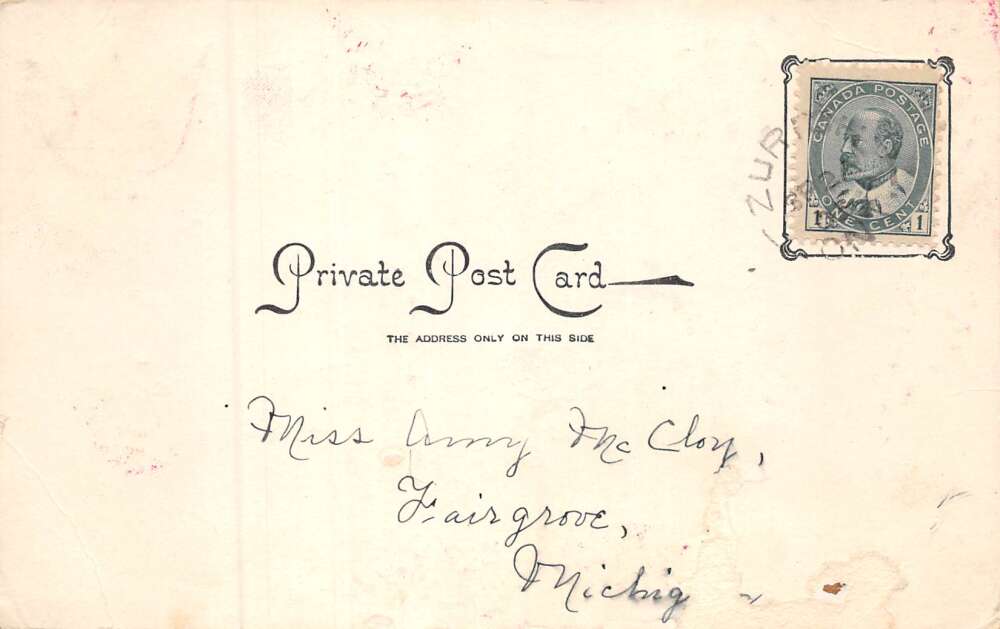 CANADA POSTAGE
1 ONE CENT 1
ZUR
Private Post Card
THE ADDRESS ONLY ON THIS SIDE
Miss Amy McCloy,
Fairgrove,
Michig